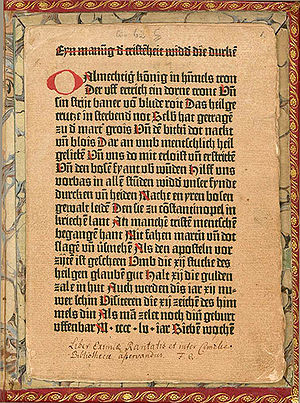 Eyn manũg d cristẽheit widd die durkẽ
O Almechtig kõnig in himels tron
Der uff ertrich ein dorne crone Uñ
sin streit baner võ blude roit Das heilge
crutze in sterbend not Selb hat getragẽ
zu d mart' grois Uñ dẽ bittñ dot nackt
uñ blois Dar an umb menschlich heil
gelittẽ Uñ uns do mit erloist uñ erstrittẽ
Uñ den bosẽ fyant ub'wũden Hilff uns
vorbas in allẽ stũden widd unser fynde
durcken uñ heiden Mache en yren bosen
gewalt leidẽ Den sie zu cõstantinopel in
kriechẽ lant An manchẽ cristẽ menschẽ
begangẽ hant Mit fahen martñ uñ dot
slagẽ uñ v'smehẽ Als den aposteln vor
zijtẽ ist gescheen Umb die xij stucke des
heilgen glaubẽ gut Halt xij die gulden
zale in hut Auch werdẽ dis iar xij nu-
wer schin Visiteren die xij zeichẽ des him
mels din Als mã zelet noch din geburt
uffenbar M • cccc • lv • iar Siebẽ wochẽ
Liber Eximiæ Raritatis et inter Cimelia
Bibliothecæ asservandus. F. G.